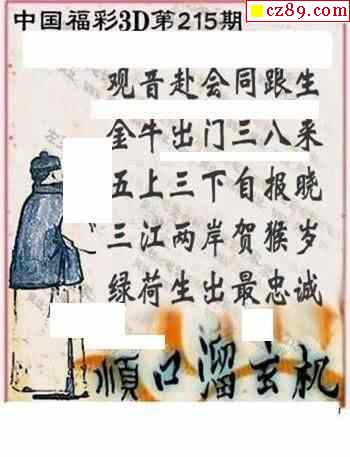 cz89.com
中国福彩3D第215期
观音赴会同跟生
金牛出门三八来
五上三下自报晓
三江两岸贺猴岁
绿荷生出最忠诚
顺口溜玄机